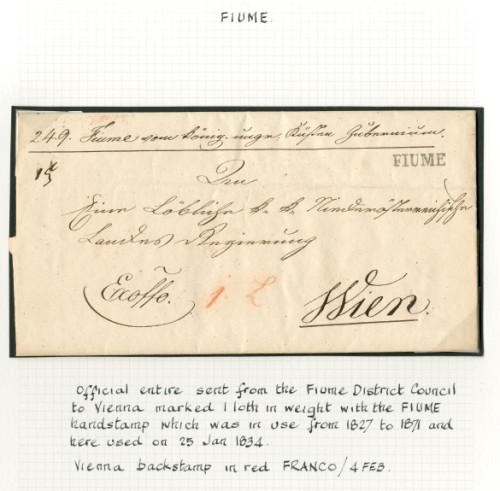 FIUME.
249. Fiume vom König. unga. Küsten Gubernium.
FIUME
An
Eine Löbliche k. k. Niederösterreichische
Landes Regierung
Exoffo.
1. L
Wien.
Official entire sent from the Fiume District Council
to Vienna marked 1 loth in weight with the FIUME
handstamp which was in use from 1827 to 1871 and
here used on 25 Jan 1834.
Vienna backstamp in red FRANCO/4 FEB.